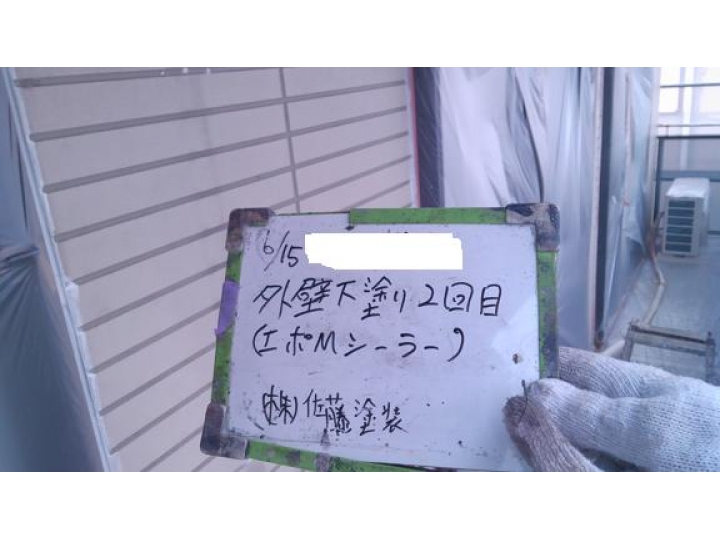 6/15
外壁下塗り2回目
(エポMシーラー)
(株)佐藤塗装